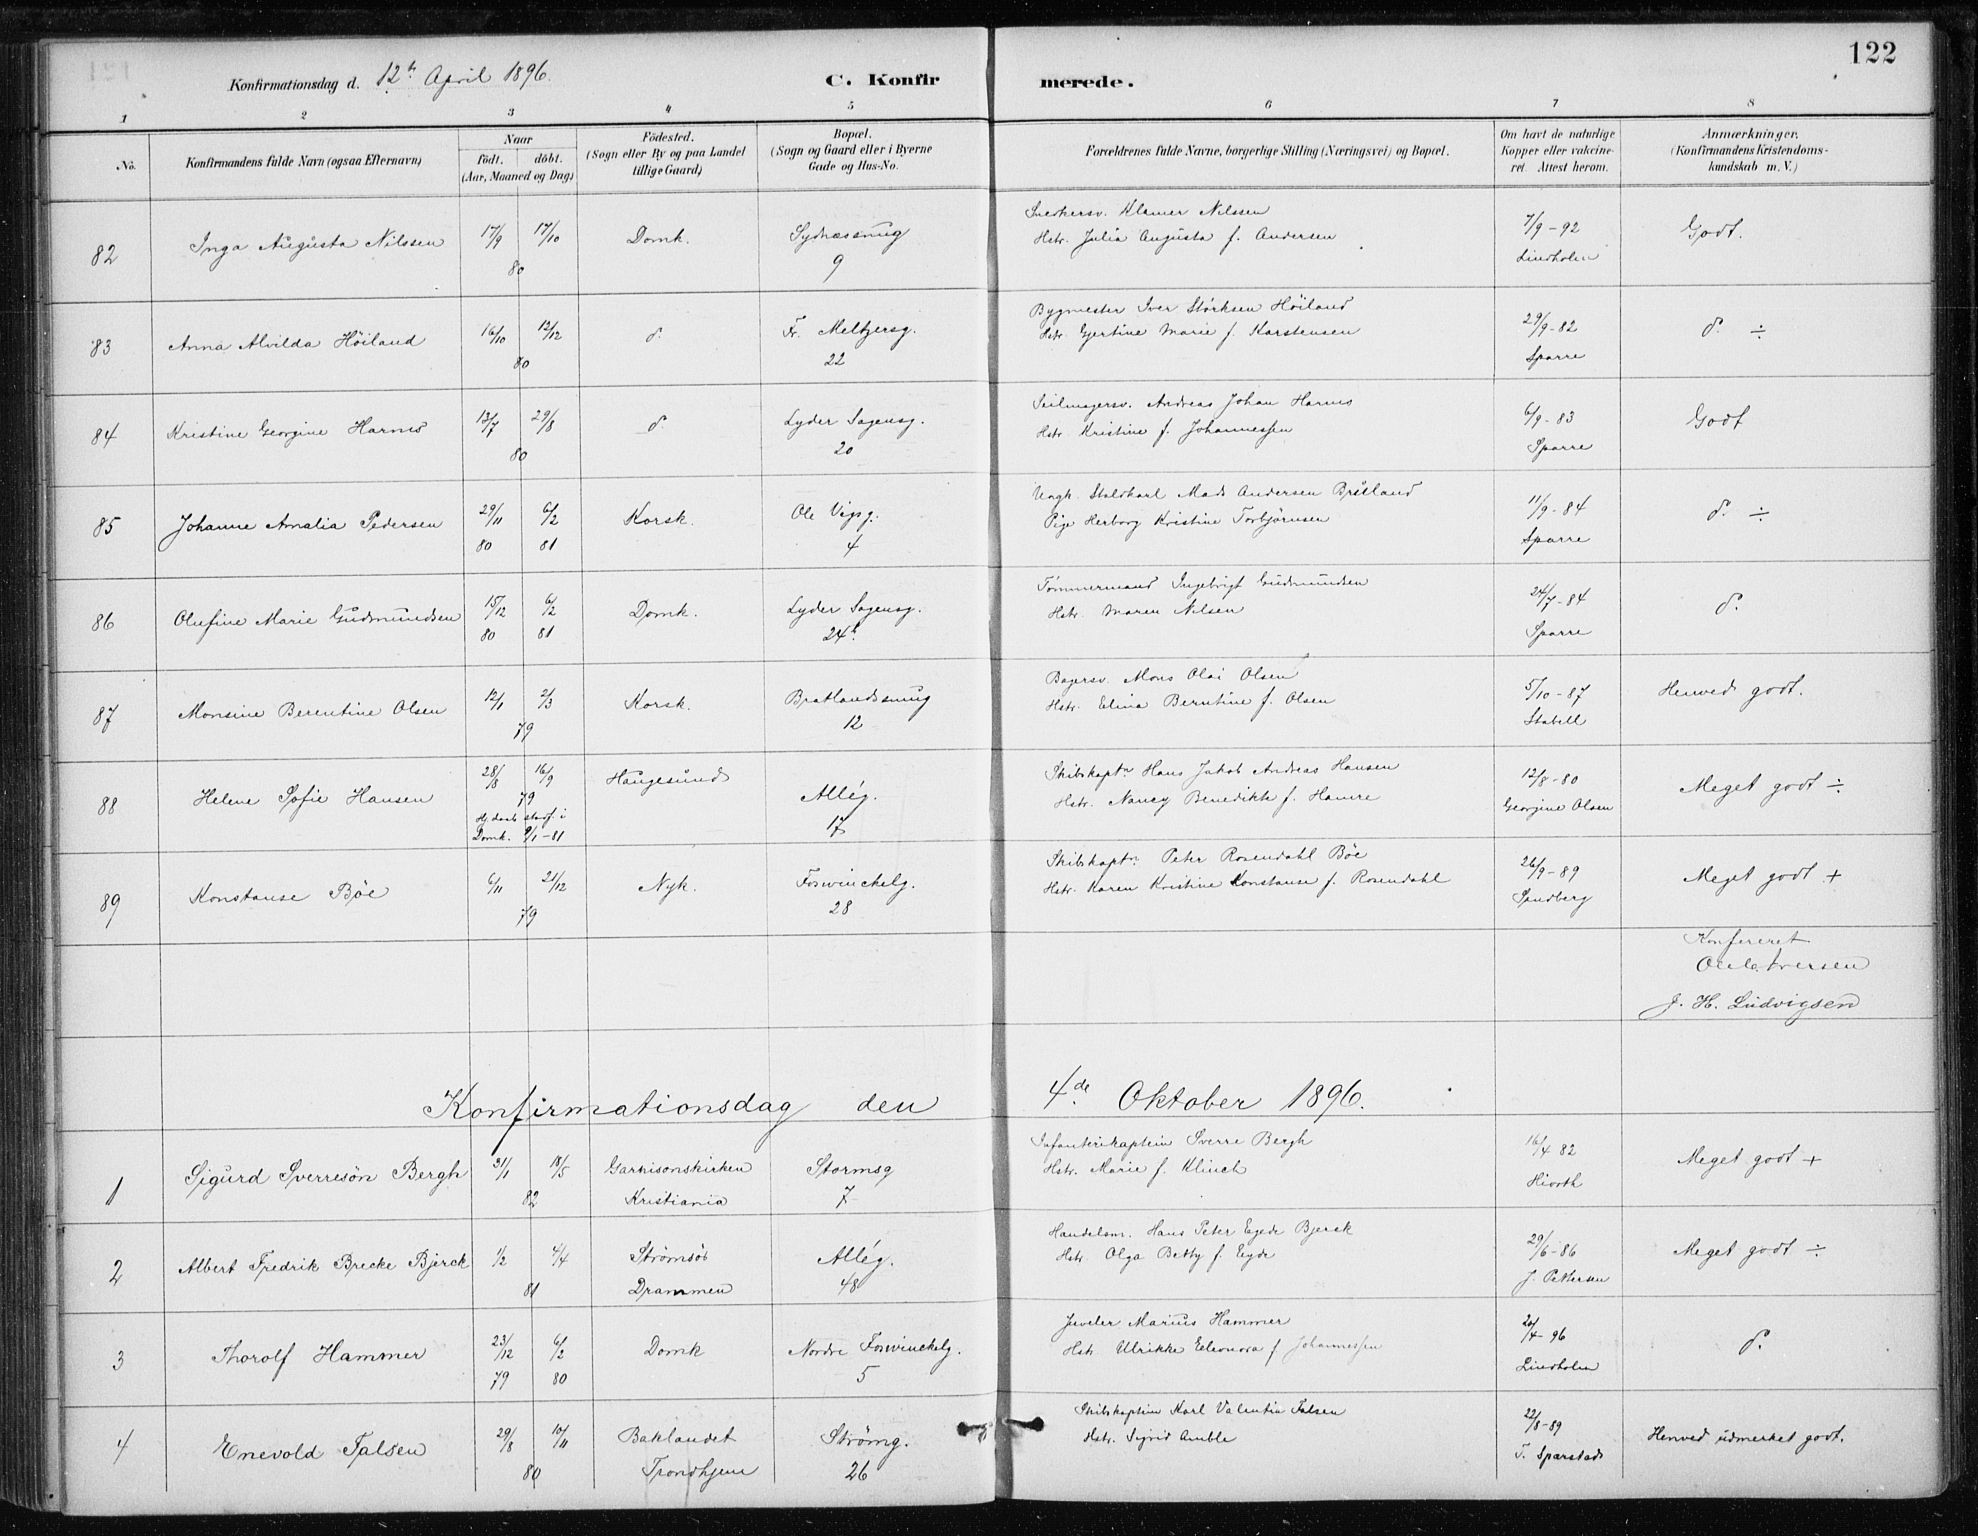 122
Konfirmationsdag d. 12th April 1896.
C. Konfirmerede.
1 2 3 4 5 6 7 8
No. Konfirmandens fulde Navn (ogsaa Efternavn) Naar födt. döbt. (Aar, Maaned og Dag) Födested. (Sogn eller By og paa Landet tillige Gaard) Bopæl. (Sogn og Gaard eller i Byerne Gade og Hus-No. Forældrenes fulde Navne, borgerlige Stilling (Næringsvei) og Bopæl. Om havt de naturlige Kopper eller vakcineret. Attest herom. Anmærkninger. (Konfirmandens Kristendomskundskab m. V.)
82 Inga Augusta Nilssen 17/9 17/10 80 Domk. Sydnessmug 9 Snedkersv. Klamer Nilssen
Hstr. Julia Augusta f. Andersen 7/9-92 Lindholm Godt.
83 Anna Alvilda Höiland 16/10 12/12 80 d. Fr. Meltzersg. 22 Bygmester Iver Störksen Höiland
Hstr. Gjertine Marie f. Karstensen 29/9-82 Sparre d. ÷
84 Kristine Georgine Harms 13/7 29/8 80 d Lyder Sagensg. 20 Seilmagersv. Andreas Johan Harms
Hstr. Kristine f. Johannessen 6/9-83 Sparre Godt
85 Johanne Amalia Pedersen 29/11 80 6/2 81 Korsk. Ole Vigsg. 4 Ungk. Staldkarl Mads Andersen
Pige Herborg Kristine Torbjörnsen 11/9-84 Sparre d. ÷
86 Olufine Marie Gudmundsen 15/12 80 6/2 81 Domk. Lyder Sagensg. 24b Tömmermand Ingebrigt Gudmundsen
Hstr. Maren Nilsen 24/7-84 Sparre d.
87 Monsine Berentine Olsen 12/1 2/3 79 Korsk. Bratlandssmug 12 Bagersv. Mons Olai Olsen
Hstr. Elina Berntine f. Olsen 5/10-87 Stabell Henved godt.
88 Helene Sofie Hansen 28/8 16/9 79 Hj.daab stadf. i Domk. 9/1-81 Haugesund Allég. 17 Skibskaptn Hans Jakob Andreas Hansen
Hstr. Nancy Benedikte f. Hamre 12/8-80 Georgine Olsen Meget godt ÷
89 Konstanse Böe 6/11 21/12 79 Nyk. Fosvinckelg. 28 Skibskaptn. Peter Rosendahl Böe
Hstr. Karen Kristine Konstanse f. Rosendahl 26/9-89 Sandberg Meget godt +
Konfereret
Iversen
J. H. Ludvigsen
Konfirmationsdag den 4de Oktober 1896.
1 Sigurd Sverresön Bergh 31/1 18/5 82 Garnisonskirken Kristiania Stormsg 7 Infanterikaptein Sverre Bergh
Hstr. Marie f. Klinck 16/4 82 Hiorth Meget godt +
2 Albert Fredrik Brecke Bjerck 1/2 4/4 81 Strömsös Drammen Allég. 48 Handelsm. Hans Peter Egede Bjerck
Hstr. Olga Betty f. Eyde 29/6-86 J. Pettersen Meget godt ÷
3 Thorolf Hammer 23/12 79 6/2 80 Domk Nordre Fosvinckelg. 5 Juveler Marius Hammer
Hstr Ulrikke Eleonora f Johannessen 20/4-96 Lindholm d.
4 Enevold Falsen 29/8 10/11 80 Baklandet Trondhjem Strömg. 26 Skibskaptein Karl Valentin Falsen
Hstr. Sigrid Amble 22/8-89 T. Sparstad Henved udmerket godt.